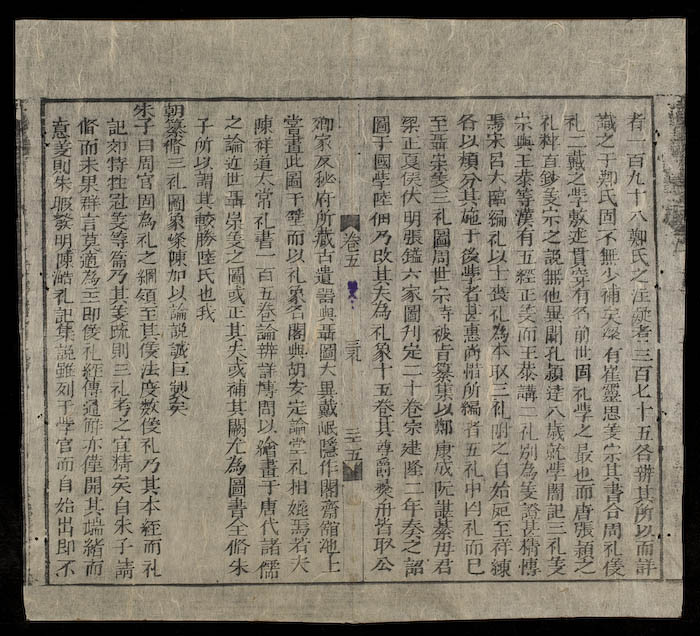 者一百九十八鄭氏之注疑者三百七十五各辨其所以而詳
識之于鄭氏固不無少補矣梁有崔靈恩義宗其書合周礼儀
礼二戴之學敷述貫穿有名前世固礼學之最也而唐張頴之
礼粹百鈔義宗之説無他異聞孔頴達八歲就學闇記三礼義
宗與王恭等漢有五經正義而王恭講二礼別為義證甚精愽
焉宋呂大臨編礼以士喪礼為本取三礼附之自始死至祥練
各以類分其施于後學者甚惠尚惜所編者五礼中凶礼而已
至聶崇義三礼圖周世宗時被旨纂集以鄭康成阮諶綦毋君
梁正夏侯伏明張鎰六家圖刊定二十卷宗建隆二年奏之詔
圖于國學陸佃乃改其失為礼象十五卷其尊爵彝舟皆取公
卷五 三礼 三五
卿家及秘府所藏古遺器與聶圖大異戴岷隱作閣齋館池上
嘗畫此圖于壁而以礼象名閣與胡安定論堂礼相媲焉若夫
陳祥道太常礼書一百五卷論辨詳博間以繪畫于唐代諸儒
之論近世聶崇義之圖或正其失或補其闕尤為圖書全脩朱
子所以謂其較勝陸氏也我
朝纂脩三礼圖象燦陳加以論説誠巨製矣
朱子曰周官固為礼之綱領至其儀法度數儀礼乃其本經而礼
記郊特牲冠義等篇乃其義疏則三礼考之宜精矣自朱子請
脩而未果群言莫適為主即儀礼經傳通觧亦僅開其端緒而
意義則朱瑕發明陳澔礼記集説雖列于學官而自始出即不